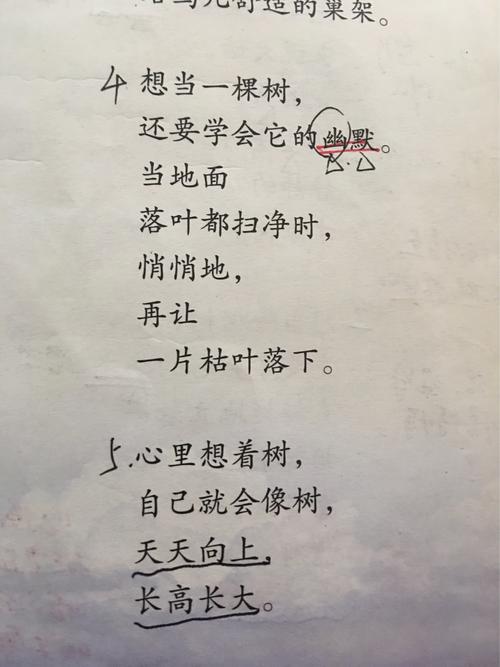 舒适的巢架。
4 想当一棵树，
还要学会它的幽默。
当地面
落叶都扫净时，
悄悄地，
再让
一片枯叶落下。
5.心里想着树，
自己就会像树，
天天向上，
长高长大。